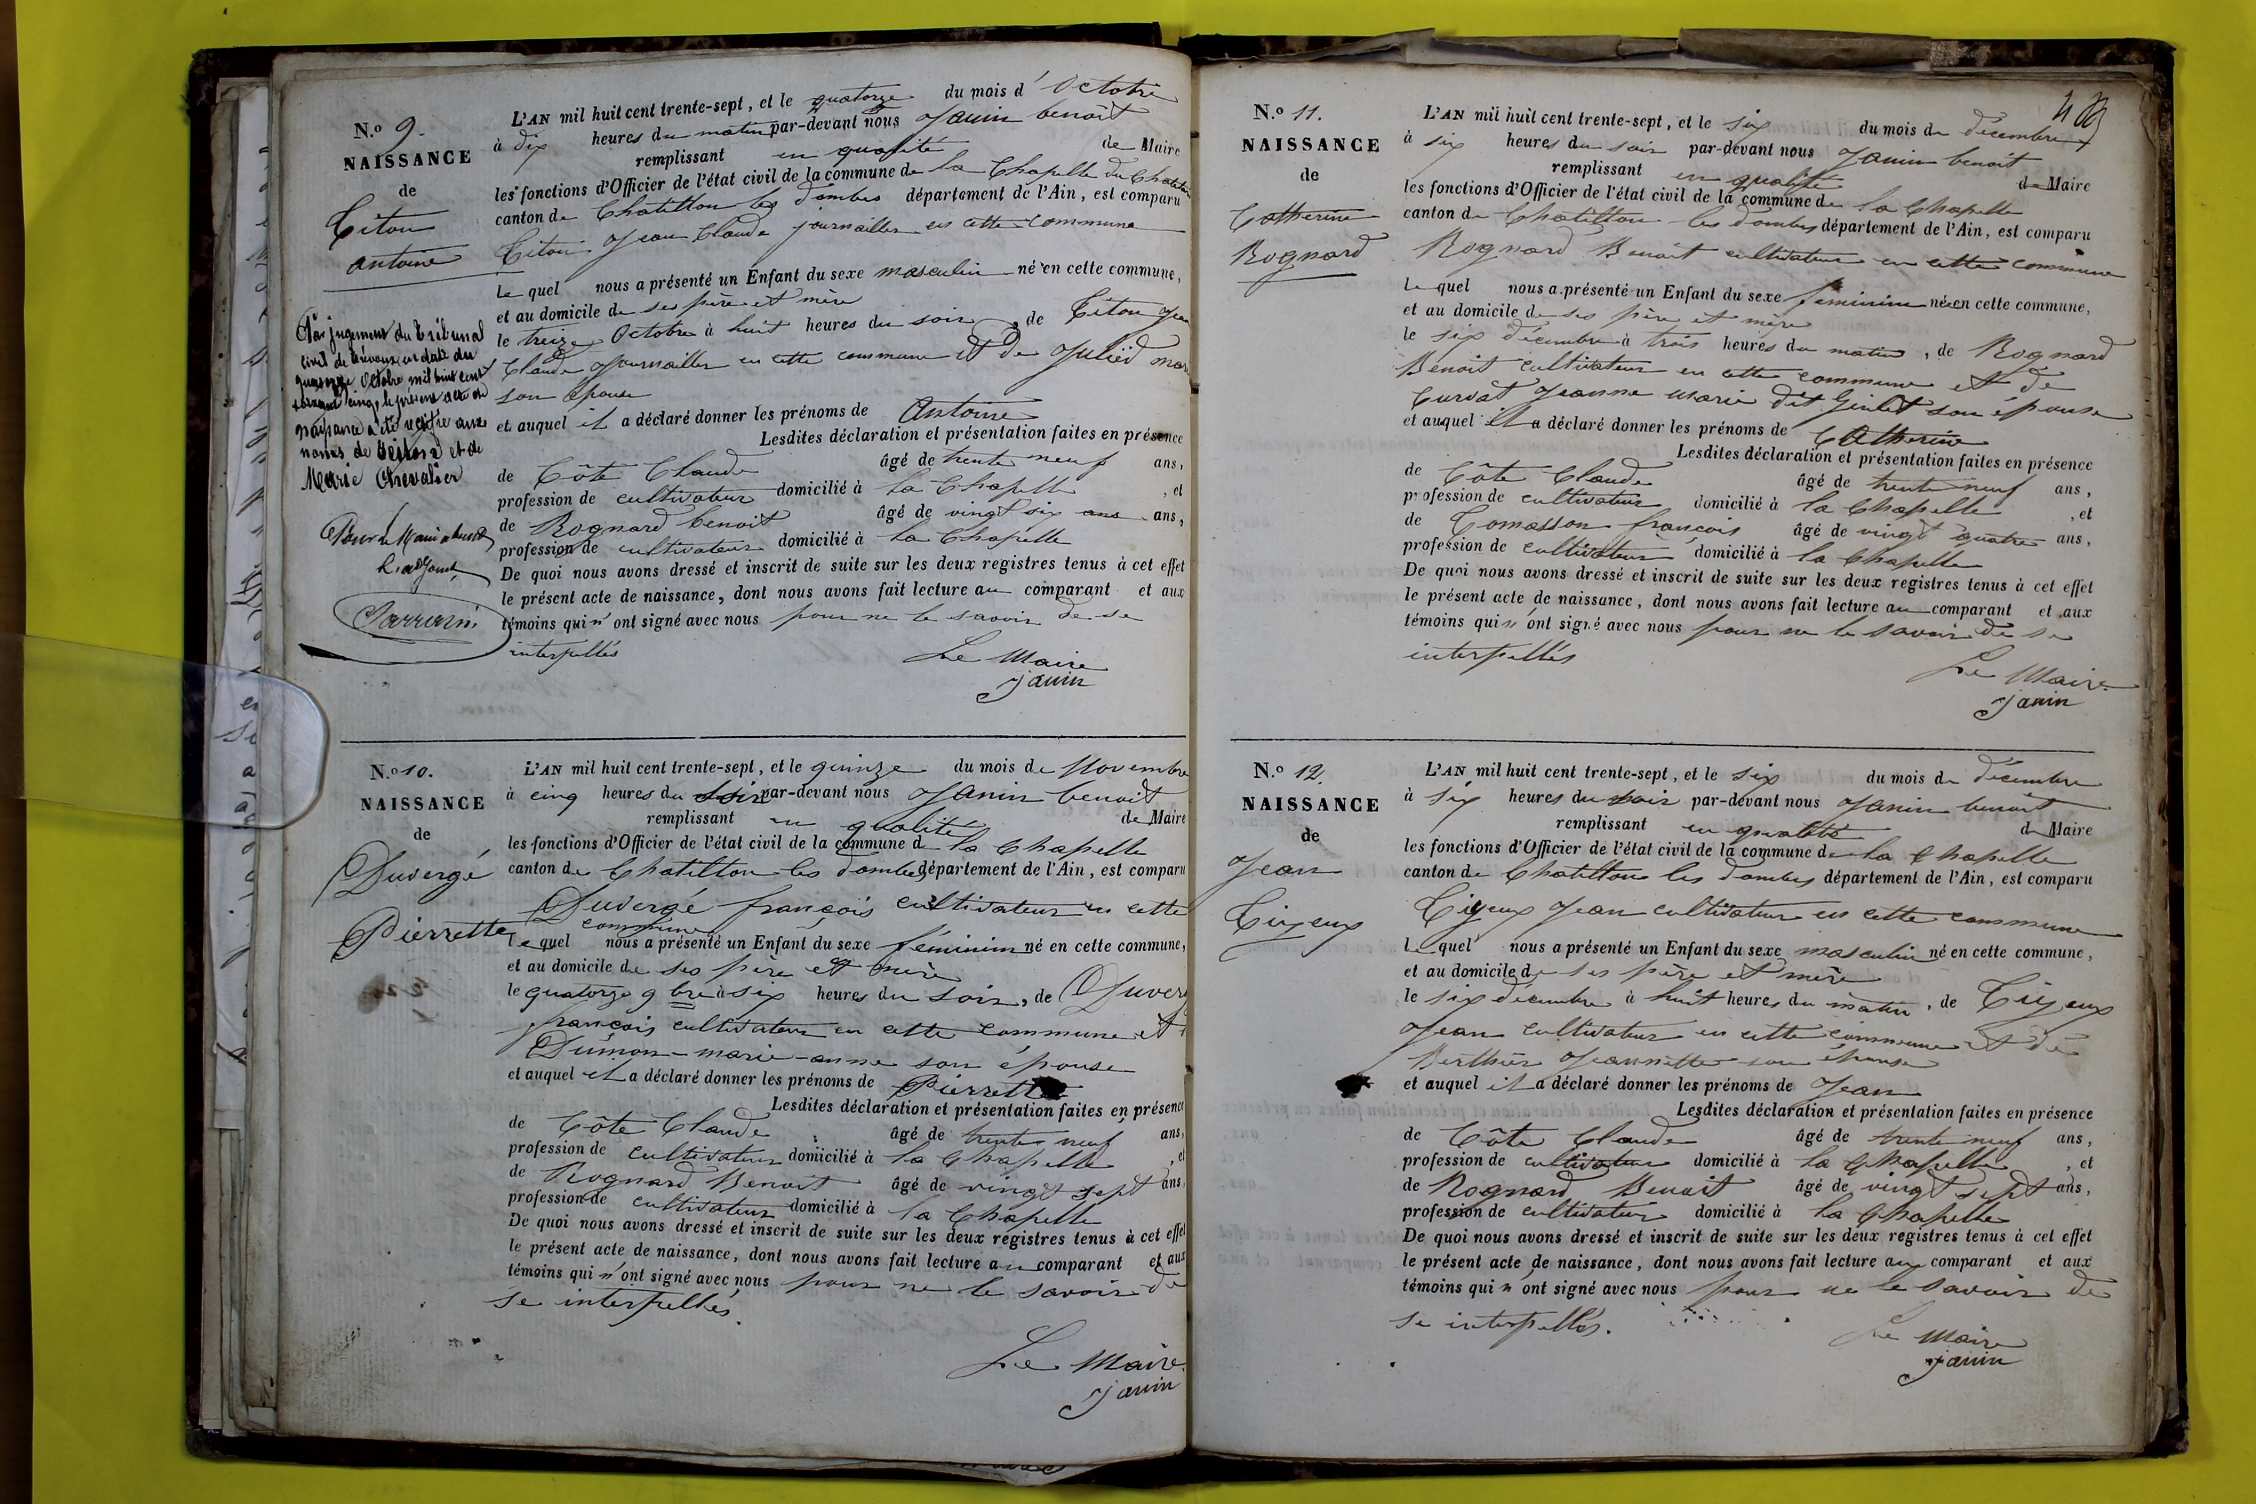 N.o 9.
NAISSANCE
de
Citon
antoine
Par jugement du Tribunal
civil de Trévoux en date du
quatorze Octobre mil huit cent
cinq, le présent acte de
naissance a été rectifié aux
noms de et de
Marie Chevalier
Pour le Maire absent
L'adjoint
L'AN mil huit cent trente-sept, et le quatorze du mois d'Octobre
à dix heures du matin par-devant nous Janin benoit
remplissant en qualité de Maire
les fonctions d'Officier de l'état civil de la commune de la Chapelle du Chatelard
canton de Chatillon les dombes département de l'Ain, est comparu
Citon Jean Claude journallier en cette commune
Le quel nous a présenté un Enfant du sexe masculin né en cette commune,
et au domicile de ses père et mère
le treize Octobre à huit heures du soir, de Citon Jean
Claude Journallier en cette commune et de
son épouse
et auquel il a déclaré donner les prénoms de Antoine
Lesdites déclaration et présentation faites en présence
de Côte Claude âgé de trente neuf ans,
profession de cultivateur domicilié à la Chapelle, et
de Rognard benoit âgé de vingt six ans ans,
profession de cultivateur domicilié à la Chapelle
De quoi nous avons dressé et inscrit de suite sur les deux registres tenus à cet effet
le présent acte de naissance, dont nous avons fait lecture au comparant et aux
témoins qui n'ont signé avec nous pour ne le savoir de se
interpellés
Le Maire
Janin
N.o 10.
NAISSANCE
de
Duvergé
Pierrette
L'AN mil huit cent trente-sept, et le quinze du mois de Novembre
à cinq heures du soir par-devant nous Janin benoit
remplissant en qualité de Maire
les fonctions d'Officier de l'état civil de la commune de la Chapelle
canton de Chatillon les dombes département de l'Ain, est comparu
Duvergé françois cultivateur en cette
commune
Le quel nous a présenté un Enfant du sexe féminin né en cette commune,
et au domicile de ses père et mère
le quatorze 9bre à six heures du soir, de Duverg
françois cultivateur en cette commune et
Dumon-marie-anne son épouse
et auquel il a déclaré donner les prénoms de Pierrette
Lesdites déclaration et présentation faites en présence
de Côte Claude âgé de trente neuf ans,
profession de cultivateur domicilié à la Chapelle, et
de Rognard Benoit âgé de vingt sept ans,
profession de cultivateur domicilié à la Chapelle
De quoi nous avons dressé et inscrit de suite sur les deux registres tenus à cet effet
le présent acte de naissance, dont nous avons fait lecture au comparant et aux
témoins qui n'ont signé avec nous pour ne le savoir de
se interpellés.
Le Maire
Janin
N.o 11.
NAISSANCE
de
Catherine
Rognard
L'AN mil huit cent trente-sept, et le six du mois de décembre
à six heures du soir par-devant nous Janin benoit
remplissant en qualité de Maire
les fonctions d'Officier de l'état civil de la commune de la Chapelle
canton de Chatillon les dombes département de l'Ain, est comparu
Rognard Benoit cultivateur en cette commune
Le quel nous a présenté un Enfant du sexe féminin né en cette commune,
et au domicile de ses père et mère
le six décembre à trois heures du matin, de Rognard
Benoit cultivateur en cette commune et de
Curvat Jeanne marie dit son épouse
et auquel il a déclaré donner les prénoms de Catherine
Lesdites déclaration et présentation faites en présence
de Côte Claude âgé de trente neuf ans,
profession de cultivateur domicilié à la Chapelle, et
de Tomasson françois âgé de vingt quatre ans,
profession de cultivateur domicilié à la Chapelle
De quoi nous avons dressé et inscrit de suite sur les deux registres tenus à cet effet
le présent acte de naissance, dont nous avons fait lecture au comparant et aux
témoins qui n'ont signé avec nous pour ne le savoir de se
interpellés
Le Maire
Janin
N.o 12.
NAISSANCE
de
Jean
Ciyeux
L'AN mil huit cent trente-sept, et le six du mois de décembre
à six heures du soir par-devant nous Janin benoit
remplissant en qualité de Maire
les fonctions d'Officier de l'état civil de la commune de la Chapelle
canton de Chatillon les dombes département de l'Ain, est comparu
Ciyeux Jean cultivateur en cette commune
Le quel nous a présenté un Enfant du sexe masculin né en cette commune,
et au domicile de ses père et mère
le six décembre à huit heures du matin, de Ciyeux
Jean cultivateur en cette commune et de
Berthier Jeannette son épouse
et auquel il a déclaré donner les prénoms de Jean
Lesdites déclaration et présentation faites en présence
de Côte Claude âgé de trente neuf ans,
profession de cultivateur domicilié à la Chapelle, et
de Rognard Benoit âgé de vingt sept ans,
profession de cultivateur domicilié à la Chapelle
De quoi nous avons dressé et inscrit de suite sur les deux registres tenus à cet effet
le présent acte de naissance, dont nous avons fait lecture au comparant et aux
témoins qui n'ont signé avec nous pour ne le savoir de
se interpellés.
Le Maire
Janin